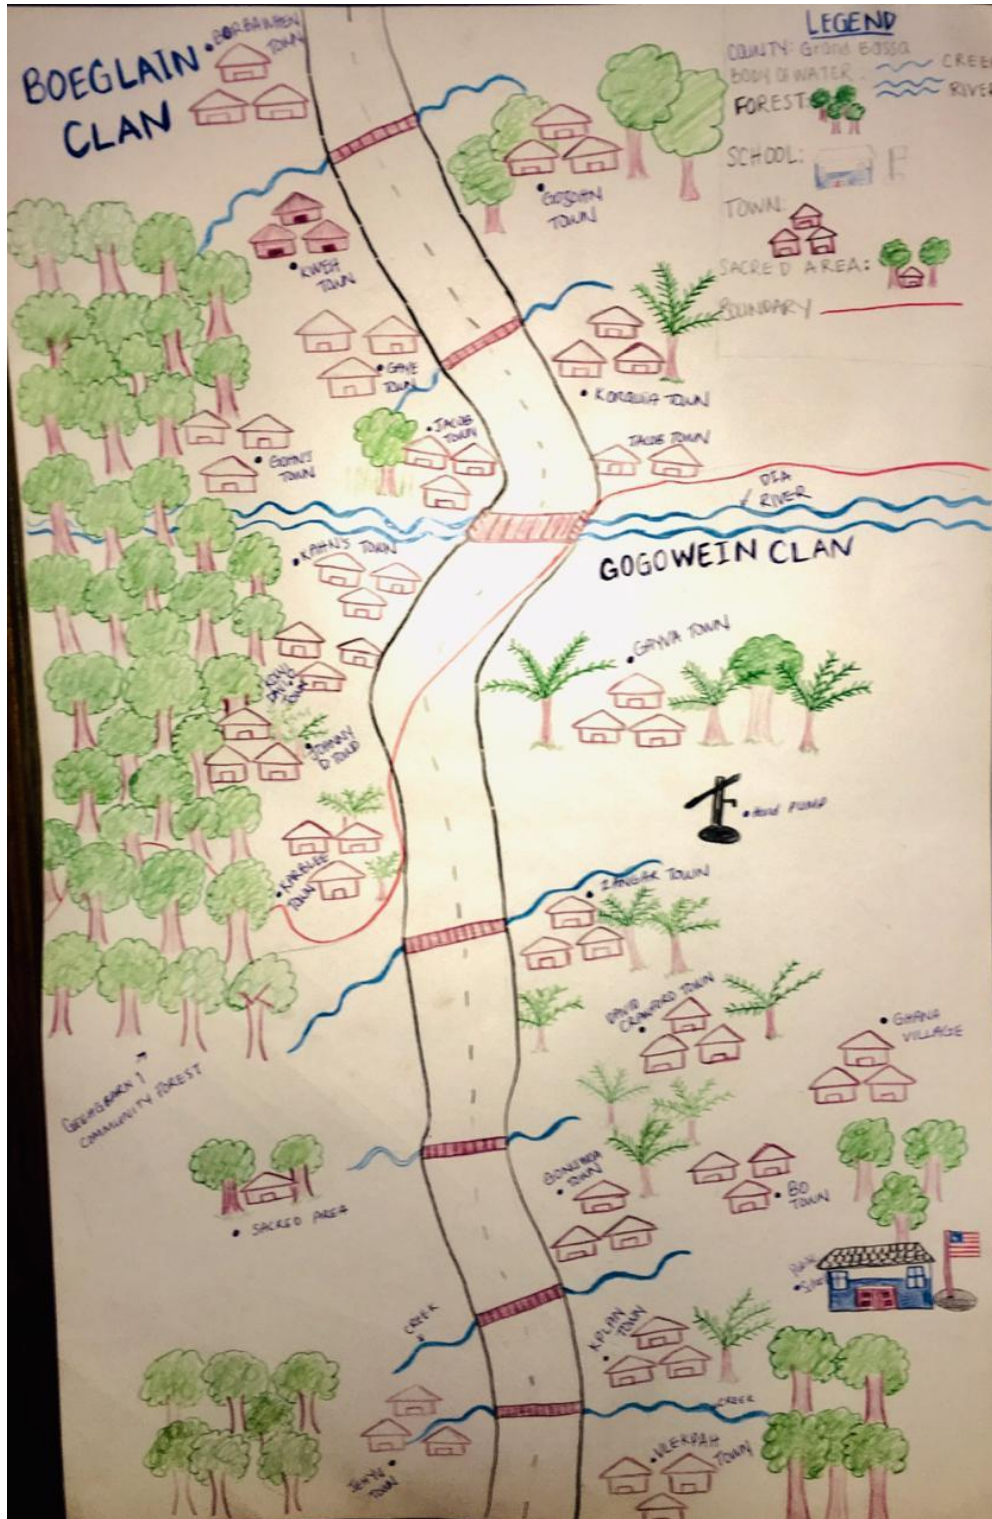 BOEGLAIN
CLAN
BORBAWHEN
TOWN
LEGEND
COUNTY: Grand Bassa
BODY OF WATER
CREEK
RIVER
FOREST:
SCHOOL:
TOWN:
SACRED AREA:
BOUNDARY
GOJOHN
TOWN
KWEH
TOWN
GAYE
TOWN
KORQUIA TOWN
JACOB
TOWN
JACOB TOWN
GOHN'S
TOWN
DIA
RIVER
KAHN'S TOWN
GOGOWEIN CLAN
GAYVA TOWN
TOWN
JOHNNY
HAND PUMP
KARBLEE
TOWN
ZANGAR TOWN
DAVID
CRAWFORD TOWN
GHANA
VILLAGE
COMMUNITY FOREST
TOWN
BO
TOWN
SACRED AREA
CREEK
KPLAIN
TOWN
CREEK
VLEKPAH
TOWN
TOWN